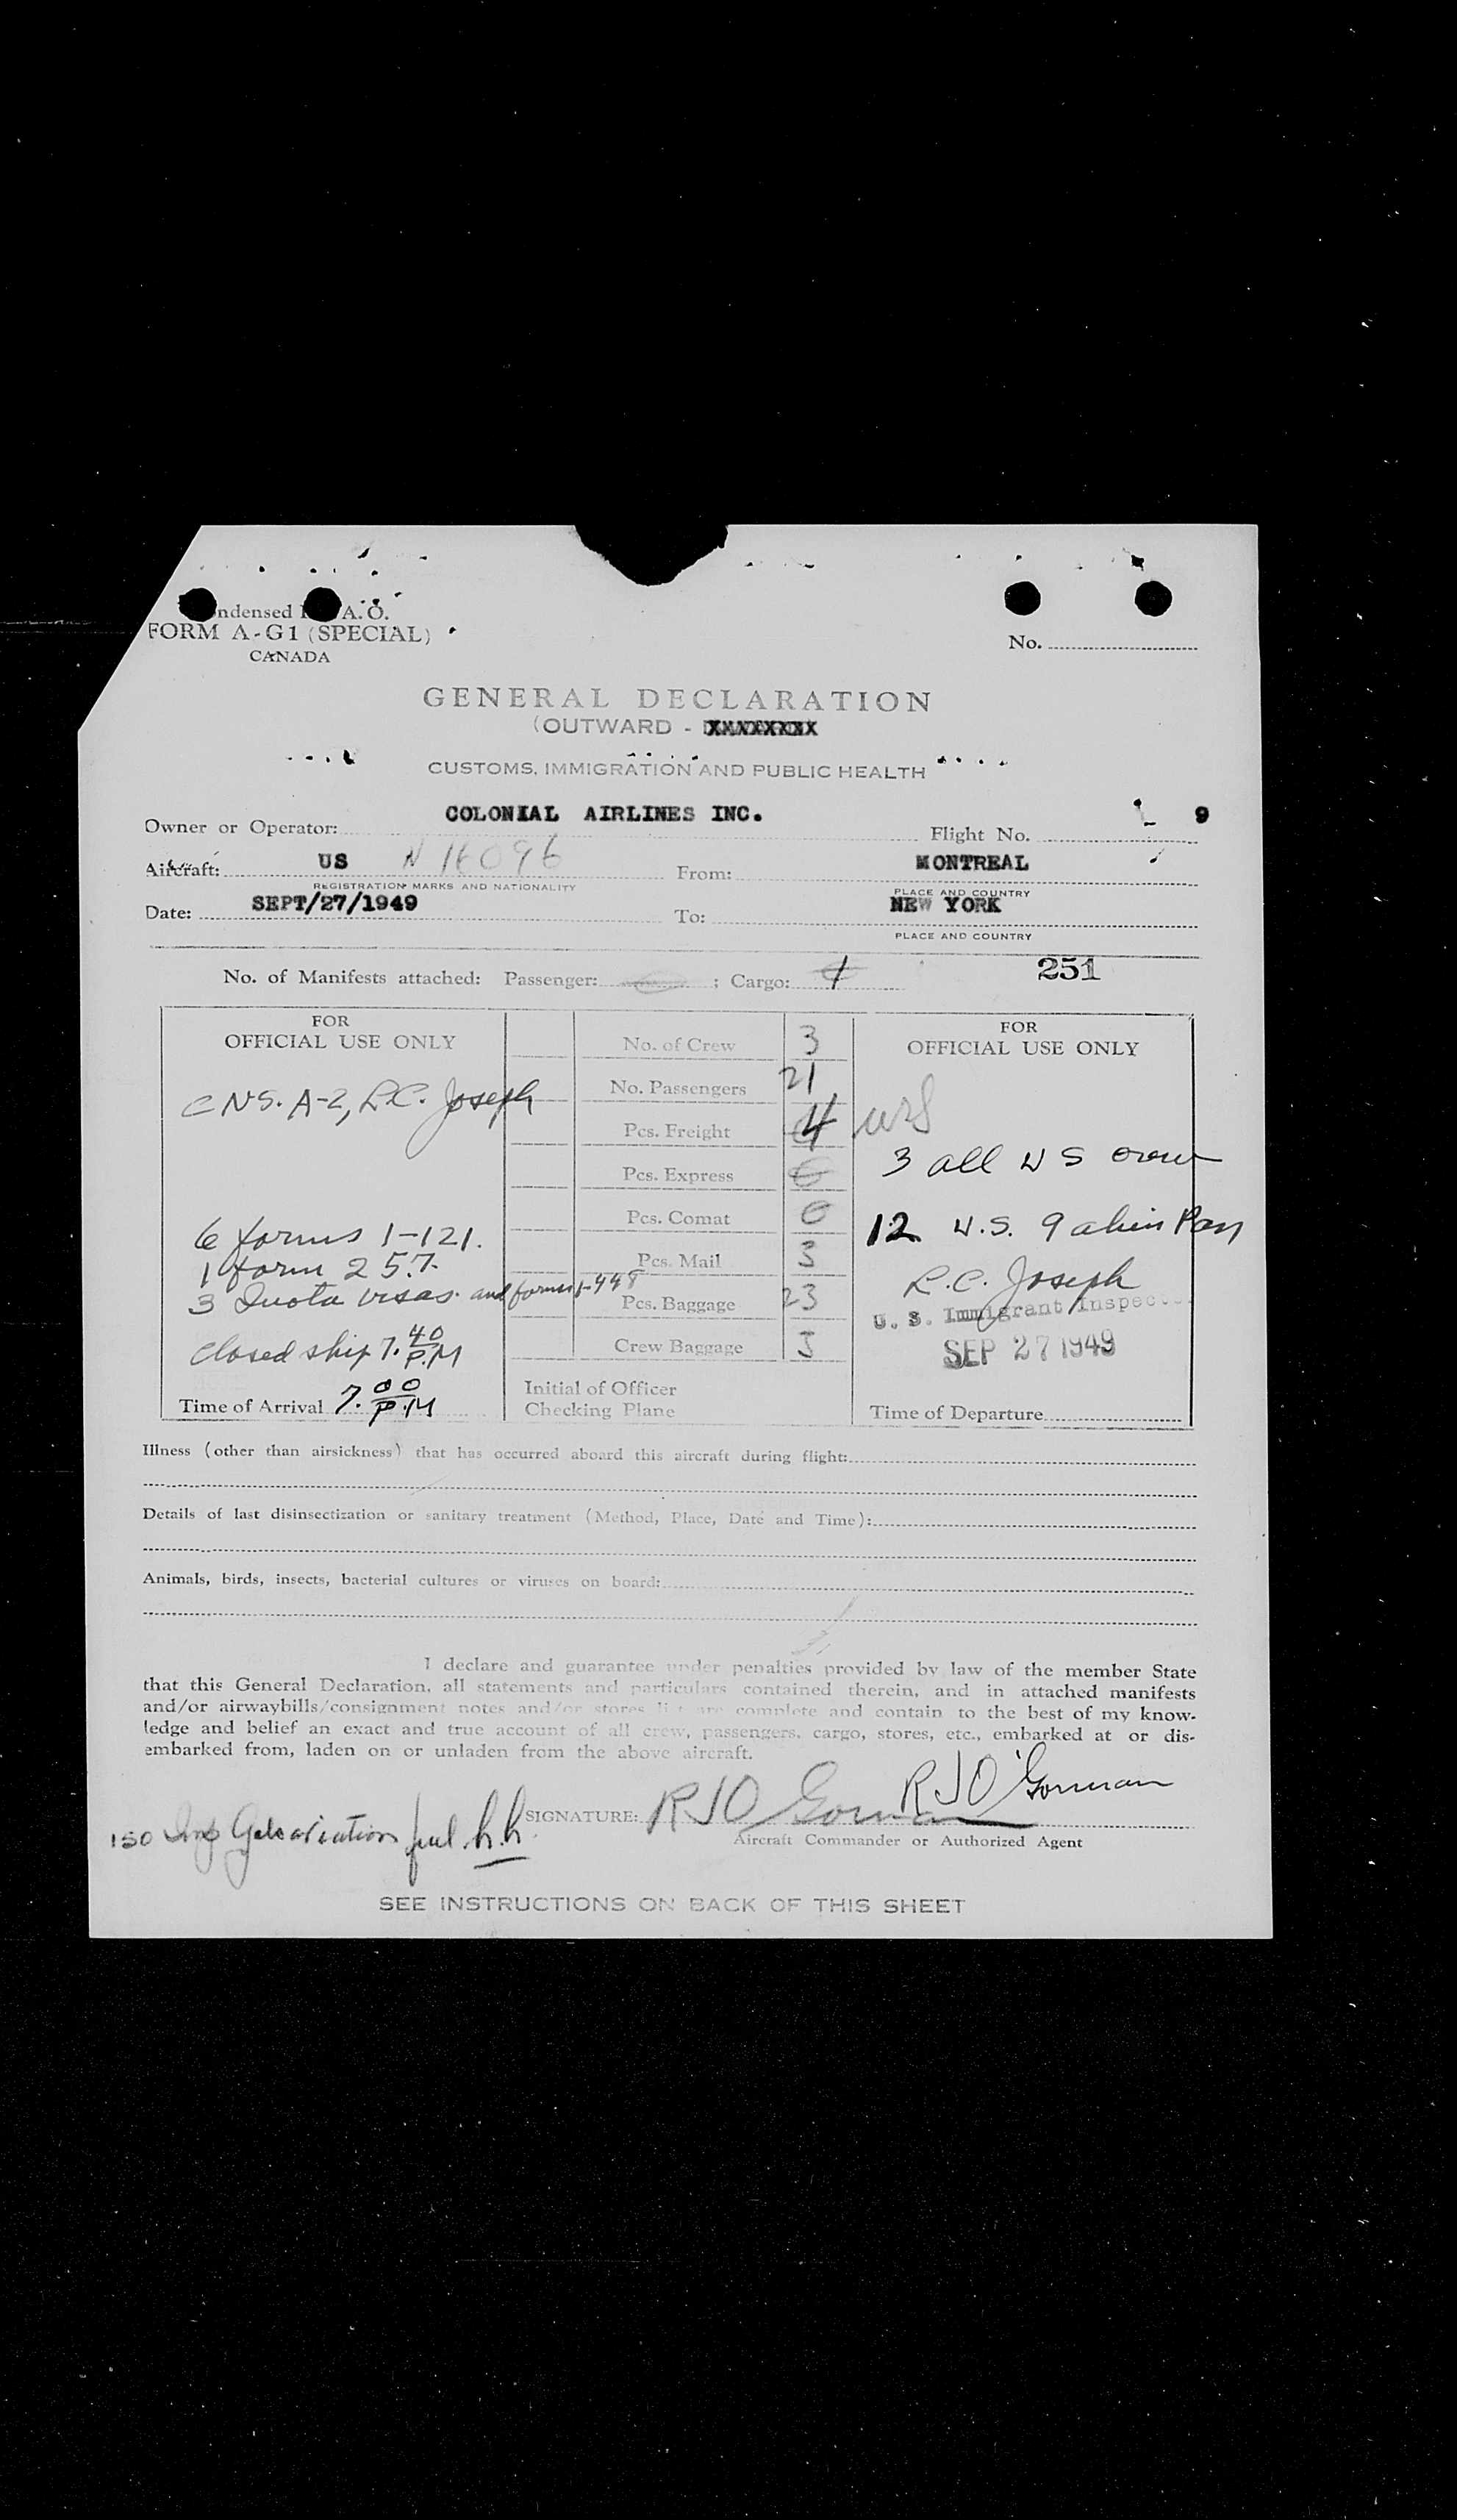 ndensed A.O.
FORM A-G1 (SPECIAL)
CANADA
No.
GENERAL DECLARATION
(OUTWARD - XXXXXXXX
CUSTOMS, IMMIGRATION AND PUBLIC HEALTH
Owner or Operator: COLONIAL AIRLINES INC. Flight No. 9
Aircraft: US N 16096 From: MONTREAL
REGISTRATION MARKS AND NATIONALITY PLACE AND COUNTRY
Date: SEPT/27/1949 To: NEW YORK
PLACE AND COUNTRY
No. of Manifests attached: Passenger: ; Cargo: 1 251
FOR
OFFICIAL USE ONLY
CNS. A-2, R.C. Joseph
6 forms 1-121.
1 form 257.
3 Quota visas. and forms 1-448
Closed ship 7.40 P.M
Time of Arrival 7.00 P.M
No. of Crew 3
No. Passengers 21
Pcs. Freight 4
Pcs. Express 0
Pcs. Comat 0
Pcs. Mail 3
Pcs. Baggage 23
Crew Baggage 3
Initial of Officer
Checking Plane
FOR
OFFICIAL USE ONLY
3 all US crew
12 U.S. 9 alien Pass
R.C. Joseph
U. S. Immigrant Inspec
SEP 27 1949
Time of Departure
Illness (other than airsickness) that has occurred aboard this aircraft during flight:
Details of last disinsectization or sanitary treatment (Method, Place, Date and Time):
Animals, birds, insects, bacterial cultures or viruses on board:
I declare and guarantee under penalties provided by law of the member State
that this General Declaration, all statements and particulars contained therein, and in attached manifests
and/or airwaybills/consignment notes and/or stores list are complete and contain to the best of my know-
ledge and belief an exact and true account of all crew, passengers, cargo, stores, etc., embarked at or dis-
embarked from, laden on or unladen from the above aircraft.
SIGNATURE: RJO Gorman RJO'Gorman
Aircraft Commander or Authorized Agent
150 Imp Gals aviation fuel h.h.
SEE INSTRUCTIONS ON BACK OF THIS SHEET